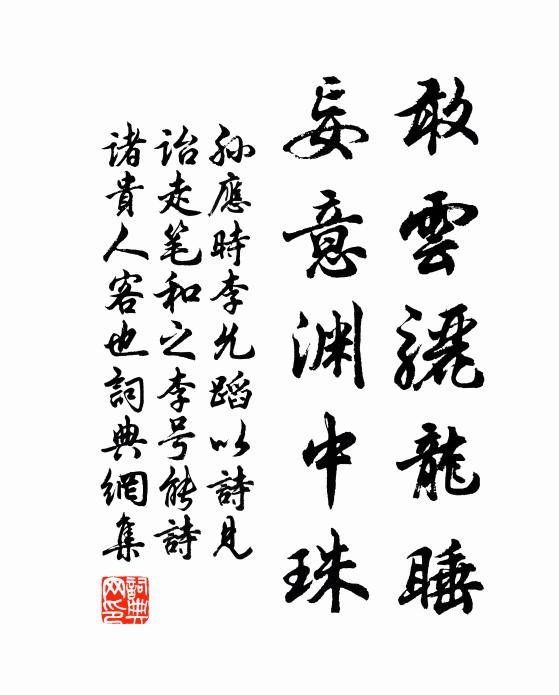 敢雲驪龍睡
妄意渊中珠
孙應時李允蹈以詩見
诒走笔和之李号能詩
诸貴人客也詞典網集
詞典网印